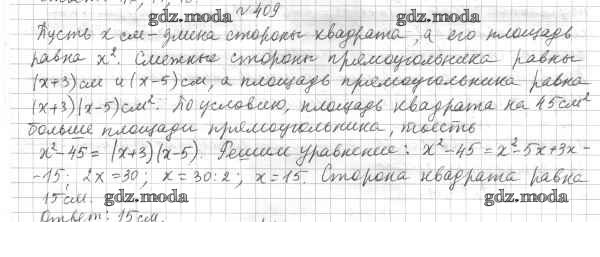 №409
gdz.moda gdz.moda
Пусть x см - длина стороны квадрата, а его площадь
равна x². Смежные стороны прямоугольника равны
(x+3) см и (x-5) см, а площадь прямоугольника равна
(x+3)(x-5) см². По условию, площадь квадрата на 45 см²
больше площади прямоугольника, то есть
x²-45 = (x+3)(x-5). Решим уравнение: x²-45 = x²-5x+3x-
-15; 2x=30; x=30:2; x=15. Сторона квадрата равна
15 см. gdz.moda gdz.moda
Ответ: 15 см.